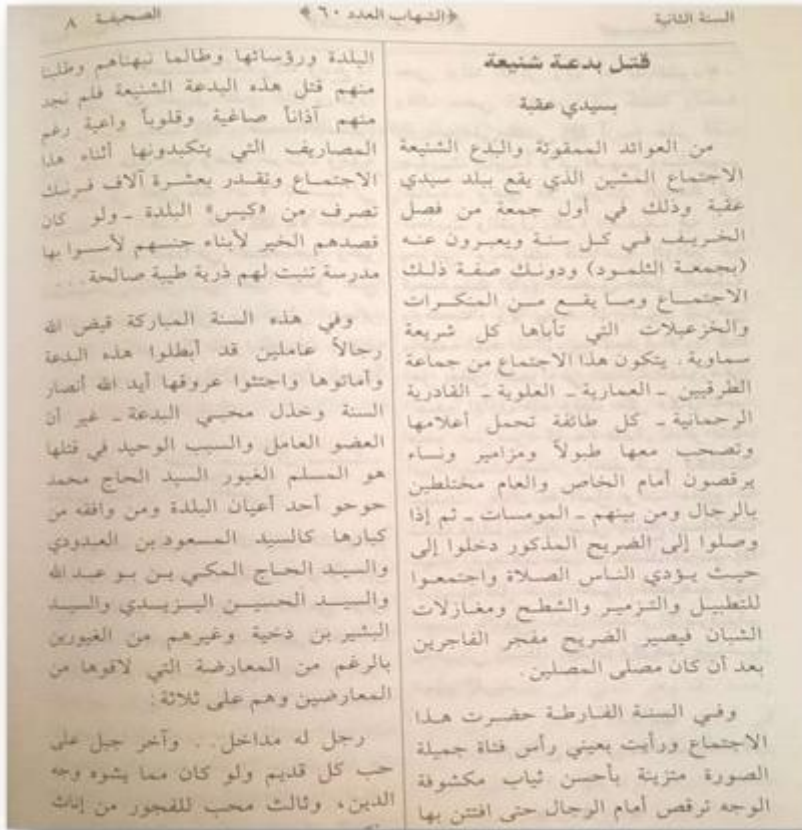 السنة الثانية ﴿الشهاب العدد ٦٠﴾ الصحيفة ٨
قتل بدعة شنيعة
بسيدي عقبة
من العوائد الممقوتة والبدع الشنيعة
الاجتماع المشين الذي يقع ببلد سيدي
عقبة وذلك في أول جمعة من فصل
الخريف في كل سنة ويعبرون عنه
(بجمعة الثلمود) ودونك صفة ذلك
الاجتماع وما يقع من المنكرات
والخزعبلات التي تأباها كل شريعة
سماوية. يتكون هذا الاجتماع من جماعة
الطرقيين ـ العمارية ـ العلوية ـ القادرية
الرحمانية ـ كل طائفة تحمل أعلامها
وتصحب معها طبولاً ومزامير ونساء
يرقصون أمام الخاص والعام مختلطين
بالرجال ومن بينهم ـ المومسات ـ ثم إذا
وصلوا إلى الضريح المذكور دخلوا إلى
حيث يؤدي الناس الصلاة واجتمعوا
للتطبيل والتزمير والشطح ومغازلات
الشبان فيصير الضريح مفجر الفاجرين
بعد أن كان مصلى المصلين.
وفي السنة الفارطة حضرت هذا
الاجتماع ورأيت بعيني رأس فتاة جميلة
الصورة متزينة بأحسن ثياب مكشوفة
الوجه ترقص أمام الرجال حتى افتتن بها
البلدة ورؤسائها وطالما نبهناهم وطلبنا
منهم قتل هذه البدعة الشنيعة فلم نجد
منهم آذاناً صاغية وقلوباً واعية رغم
المصاريف التي يتكبدونها أثناء هذا
الاجتماع وتقدر بعشرة آلاف فرنك
تصرف من «كيس» البلدة ـ ولو كان
قصدهم الخير لأبناء جنسهم لأسسوا بها
مدرسة تنبت لهم ذرية طيبة صالحة...
وفي هذه السنة المباركة قيض الله
رجالاً عاملين قد أبطلوا هذه البدعة
وأماتوها واجتثوا عروقها أيد الله أنصار
السنة وخذل محبي البدعة ـ غير أن
العضو العامل والسبب الوحيد في قتلها
هو المسلم الغيور السيد الحاج محمد
حوحو أحد أعيان البلدة ومن وافقه من
كبارها كالسيد المسعود بن العدودي
والسيد الحاج المكي بن بو عبد الله
والسيد الحسين اليزيدي والسيد
البشير بن دخية وغيرهم من الغيورين
بالرغم من المعارضة التي لاقوها من
المعارضين وهم على ثلاثة:
رجل له مداخل.. وآخر جبل على
حب كل قديم ولو كان مما يشوه وجه
الدين، وثالث محب للفجور من إناث